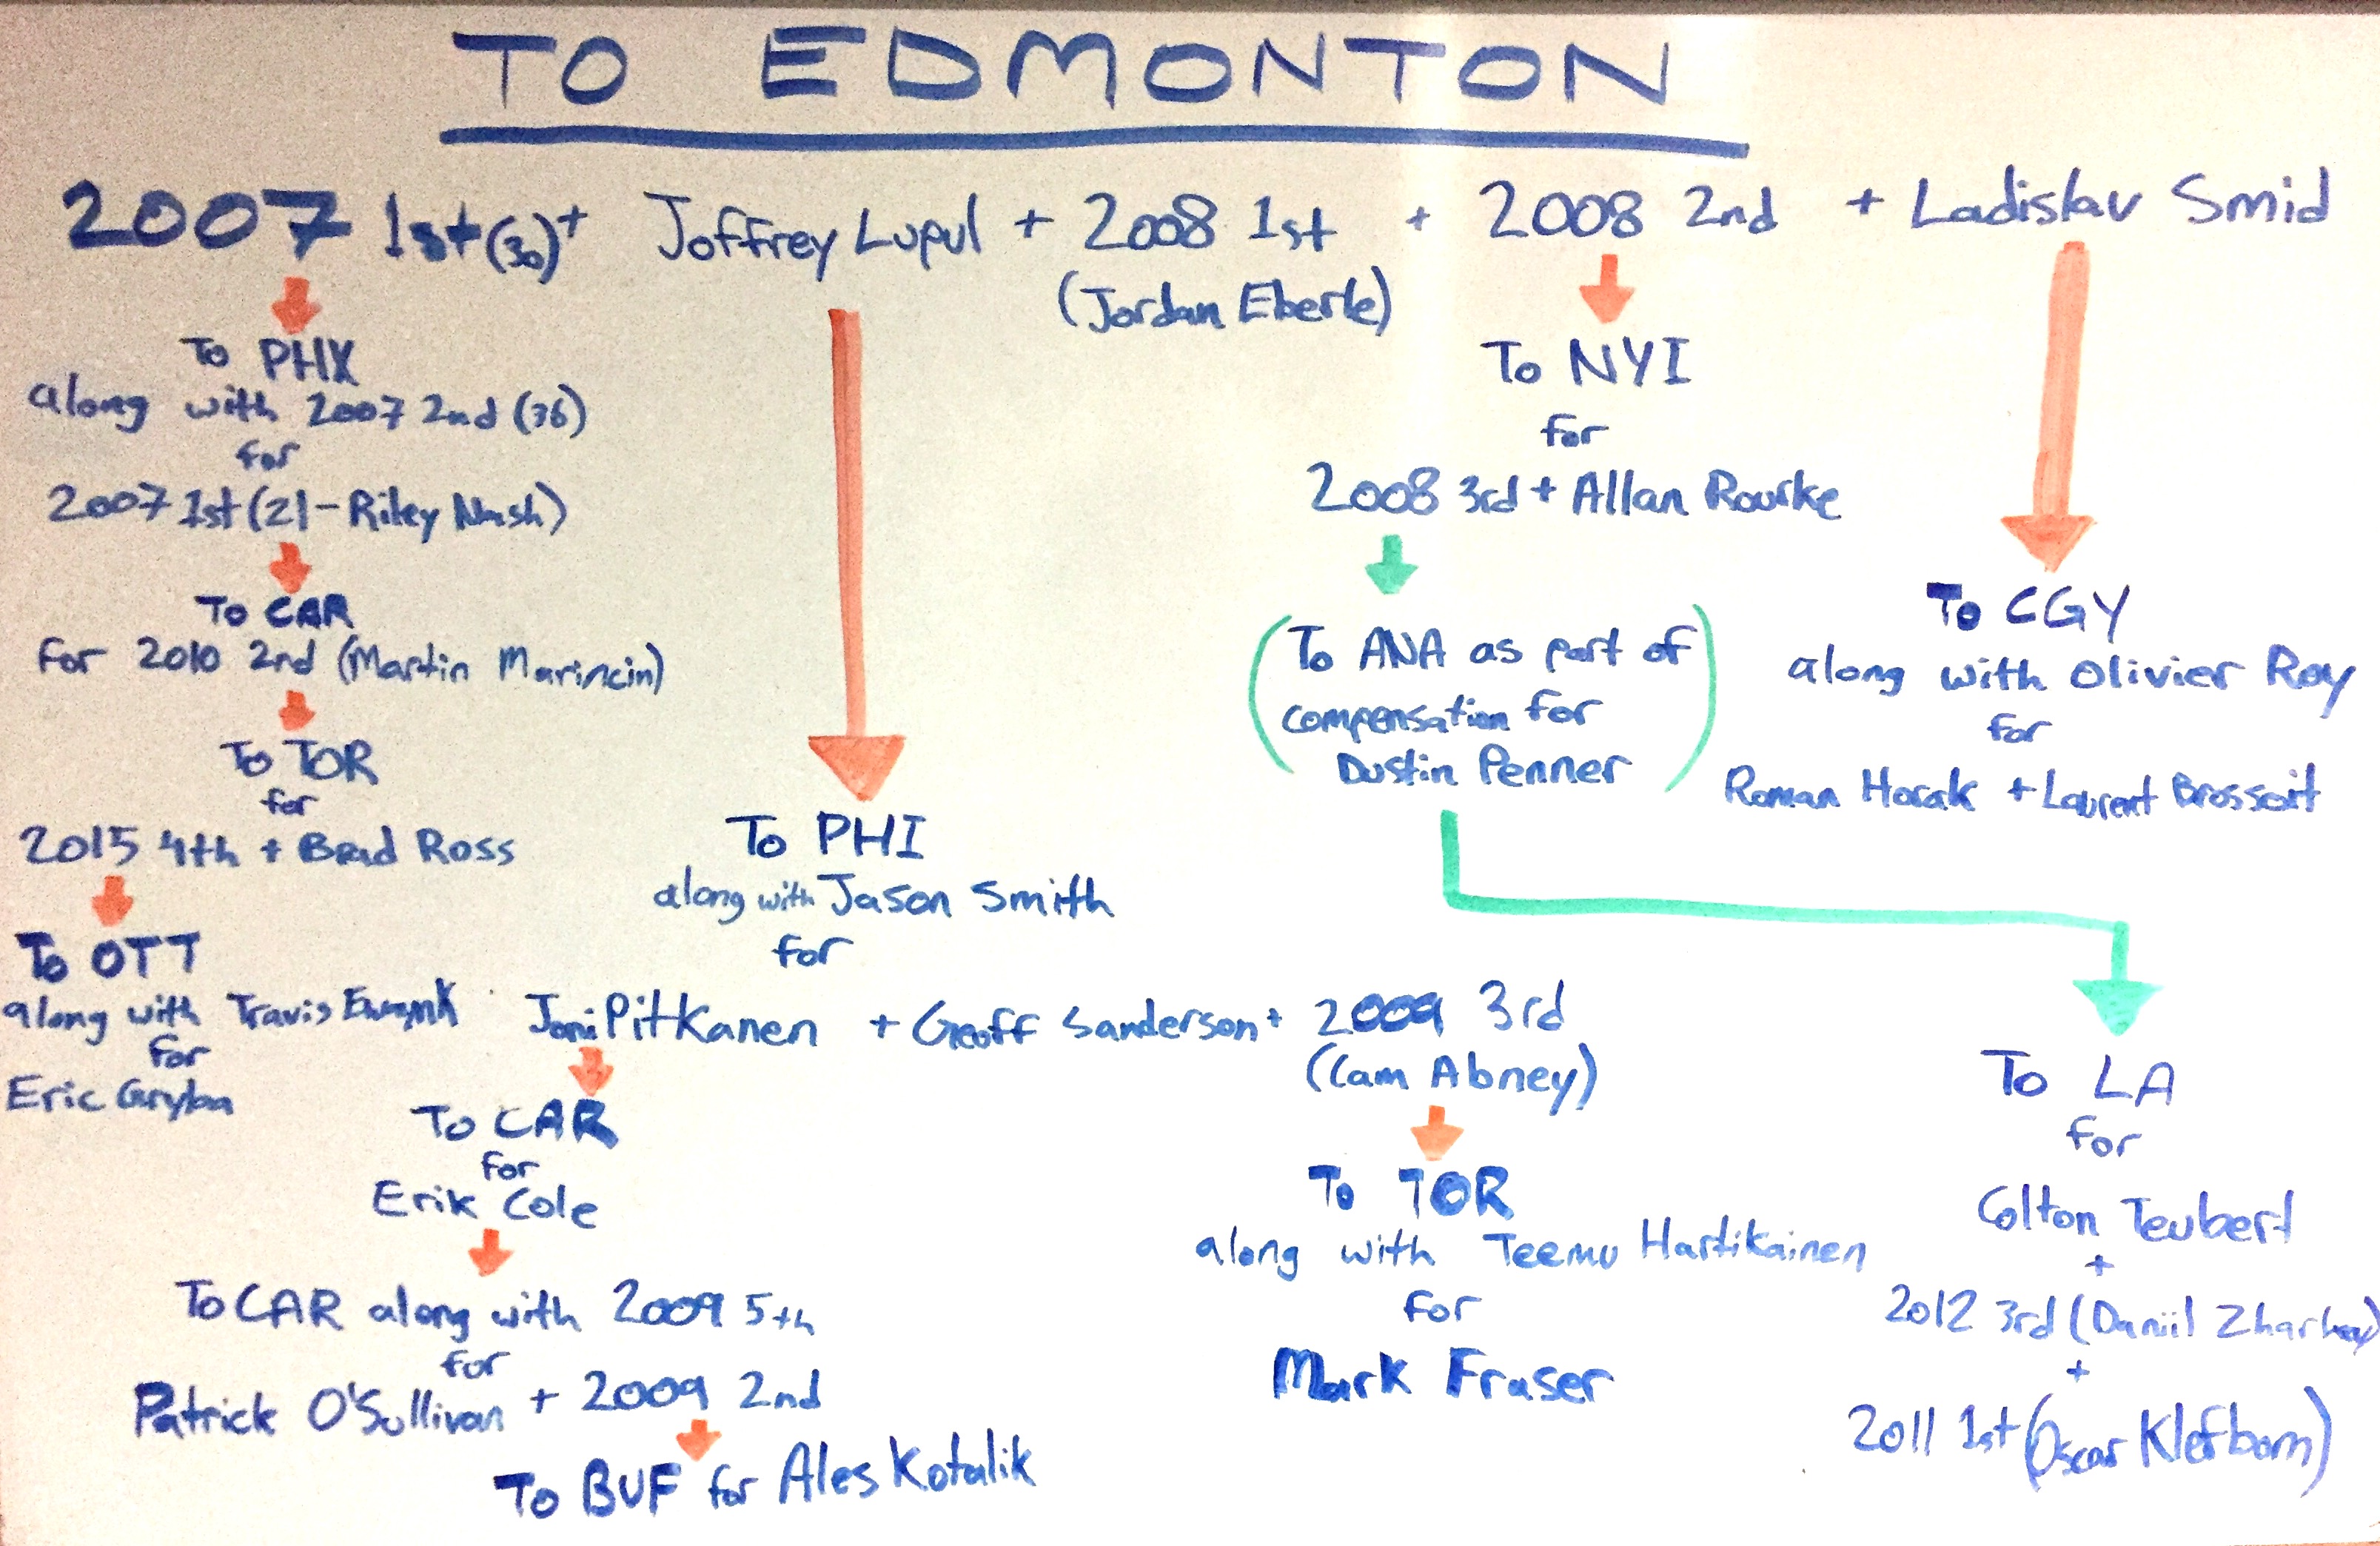 TO EDMONTON
2007 1st (30) + Joffrey Lupul + 2008 1st + 2008 2nd + Ladislav Smid
(Jordan Eberle)
To PHX
along with 2007 2nd (36)
for
2007 1st (21 - Riley Nash)
To CAR
for 2010 2nd (Martin Marincin)
To TOR
for
2015 4th + Brad Ross
To OTT
along with Travis Ewanyk
for
Eric Gryba
To PHI
along with Jason Smith
for
Joni Pitkanen + Geoff Sanderson + 2009 3rd
(Cam Abney)
To CAR
for
Erik Cole
To CAR along with 2009 5th
for
Patrick O'Sullivan + 2009 2nd
To BUF for Ales Kotalik
To TOR
along with Teemu Hartikainen
for
Mark Fraser
To NYI
for
2008 3rd + Allan Rourke
(To ANA as part of
compensation for
Dustin Penner)
To LA
for
Colton Teubert
+
2012 3rd (Daniil Zharkov)
+
2011 1st (Oscar Klefbom)
To CGY
along with Olivier Roy
for
Roman Horak + Laurent Brossoit